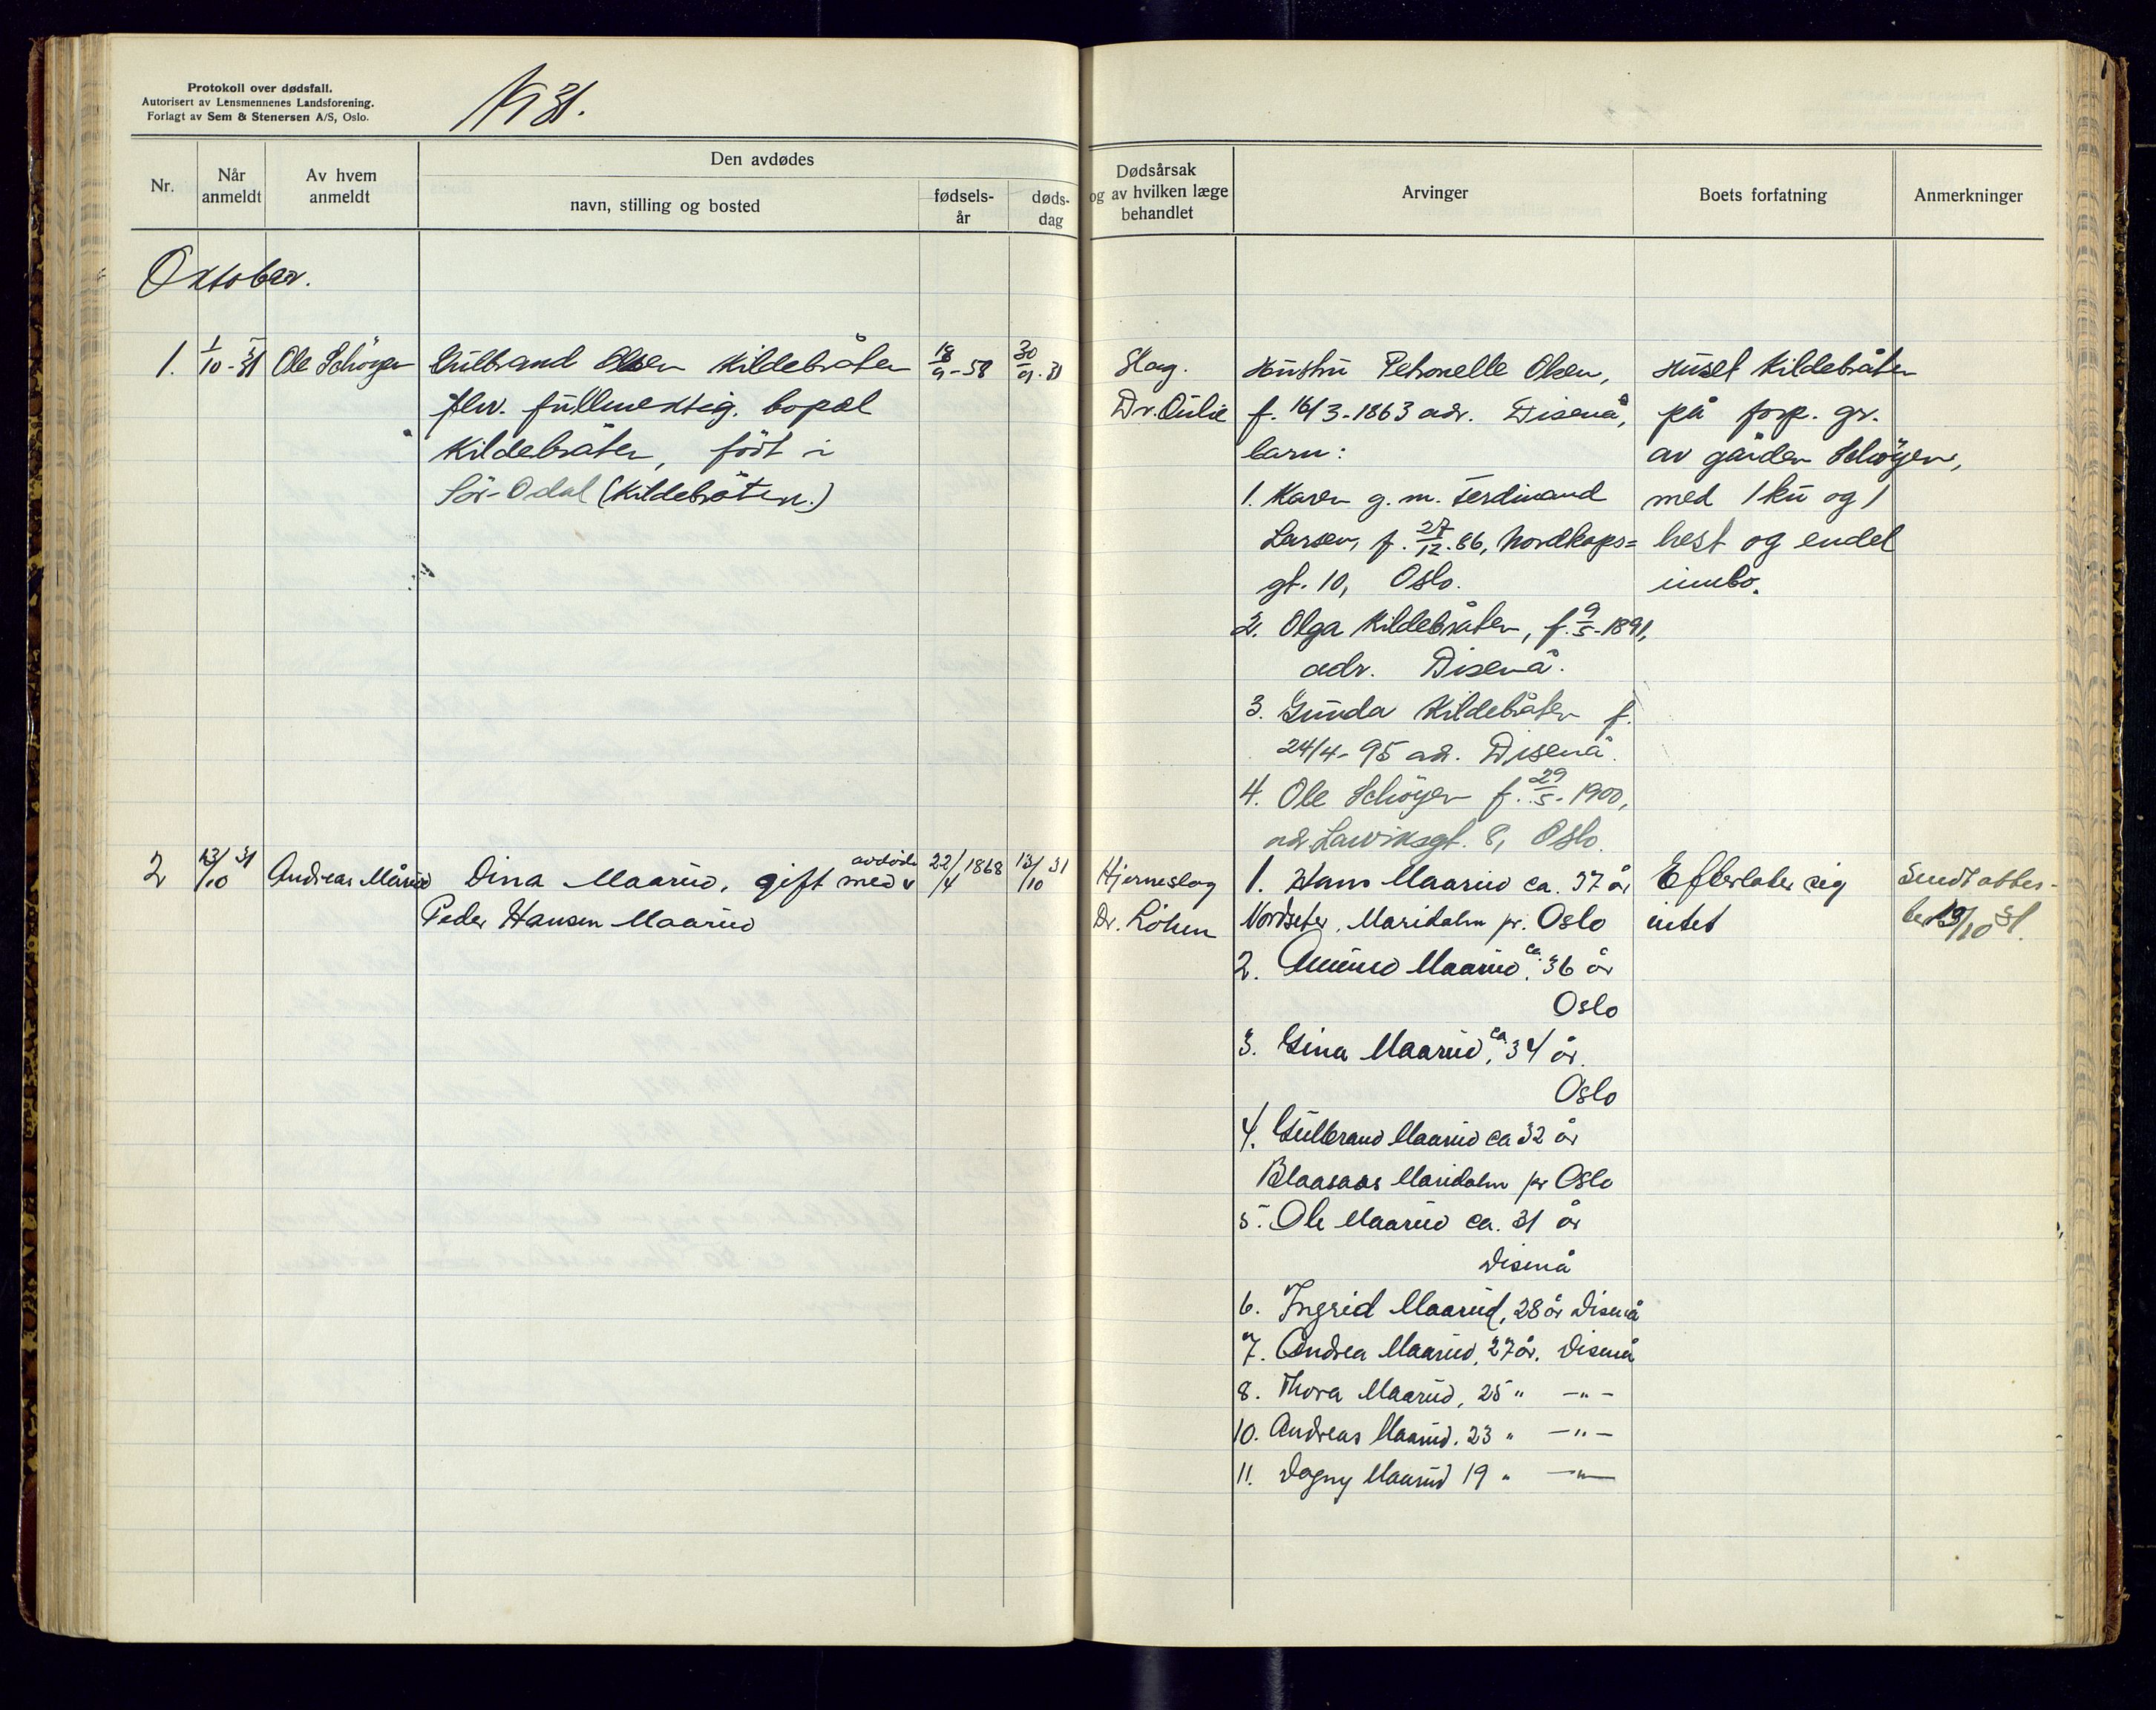 Protokoll over dødsfall.
Autorisert av Lensmennenes Landsforening.
Forlagt av Sem & Stenersen A/S, Oslo.
Nr.
Når anmeldt
Av hvem anmeldt
Den avdødes
navn, stilling og bosted
fødsels-
år
døds-
dag
Dødsårsak
og av hvilken læge
behandlet
Arvinger
Boets forfatning
Anmerkninger
Oktober.
1.
1/10-31
Ole Schöyen
Gulbrand Olsen Kildebråten
flw. fullmektig. bopæl
Kildebråten, född i
Sör-Odal (Kildebråten.)
18/9-58
30/9-31
Slag.
Dr. Aulie
Hustru Petronelle Olsen,
f. 16/3-1863 adr. Disenå,
barn:
1. Karen g. m. Ferdinand
Larsen, f. 27/12.86, Nordkaps=
gt. 10, Oslo.
2. Olga Kildebråten, f. 9/5-1891,
adr. Disenå.
3. Gunda Kildebråten f.
24/4-95 ad. Disenå.
4. Ole Schöyen f. 29/5-1900,
ad. Larviksgt. 8, Oslo.
Huset Kildebråten
på forp. gr.
av gården Schöyen,
med 1 ku og 1
hest og endel
innbo.
2
13/10 31
Andreas Mårud
Dina Maarud, gift med avdøde
Peder Hansen Maarud
22/4 1868
13/10 31
Hjerneslag
Dr. Löhen
1. Hans Maarud ca. 37 år
Nordseter, Maridalen pr. Oslo
2. Amund Maarud, ca. 36 år
Oslo
3. Gina Maarud, ca 34 år.
Oslo
4. Gulbrand Maarud ca 32 år
Blaasaas Maridalen pr Oslo
5. Ole Maarud ca. 31 år
Disenå
6. Ingrid Maarud, 28 år Disenå
7. Andrea Maarud, 27 år. Disenå
8. Thora Maarud, 25 " -"-
10. Andreas Maarud. 23 " -"-
11. Dagny Maarud 19 " -"-
Efterlater sig
intet
Sendt attes-
ter 19/10 31.